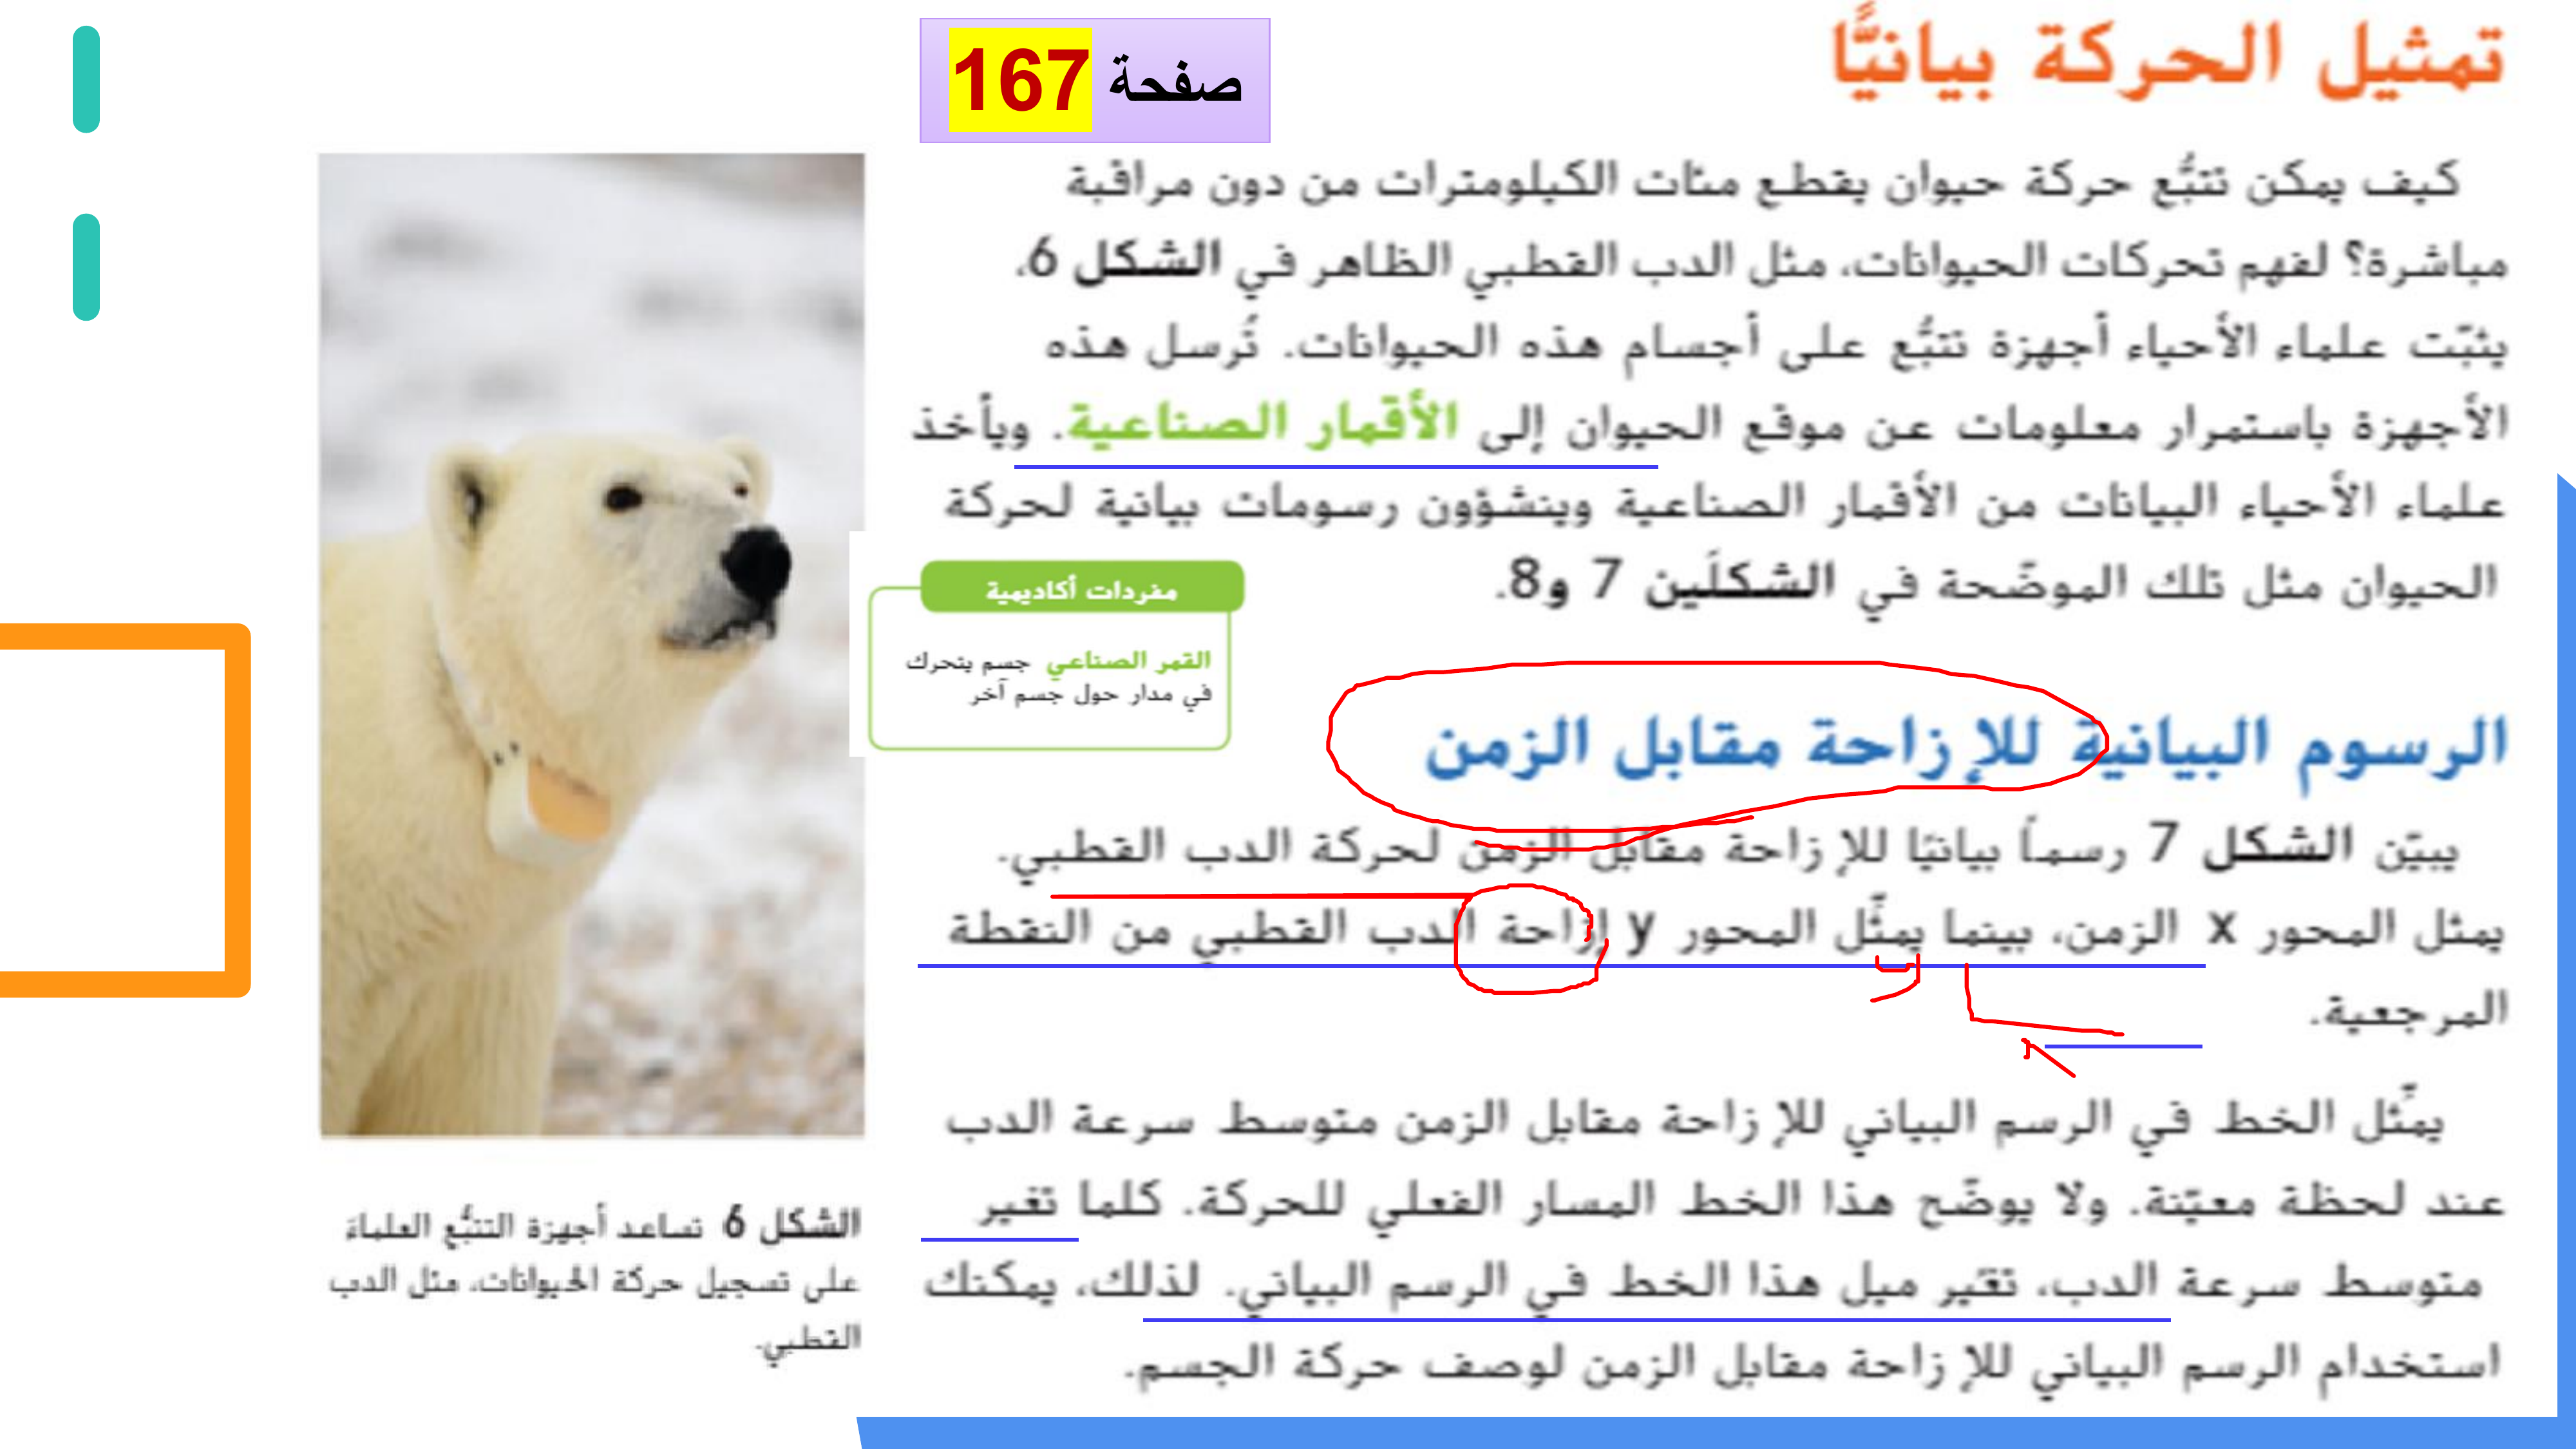 تمثيل الحركة بيانيًّا
صفحة 167
كيف يمكن تتبُّع حركة حيوان يقطع مئات الكيلومترات من دون مراقبة
مباشرة؟ لفهم تحركات الحيوانات، مثل الدب القطبي الظاهر في الشكل 6،
يثبّت علماء الأحياء أجهزة تتبُّع على أجسام هذه الحيوانات. تُرسل هذه
الأجهزة باستمرار معلومات عن موقع الحيوان إلى الأقمار الصناعية. ويأخذ
علماء الأحياء البيانات من الأقمار الصناعية وينشؤون رسومات بيانية لحركة
الحيوان مثل تلك الموضّحة في الشكلَين 7 و8.
مفردات أكاديمية
القمر الصناعي جسم يتحرك
في مدار حول جسم آخر
الرسوم البيانية للإزاحة مقابل الزمن
يبيّن الشكل 7 رسماً بيانيًا للإزاحة مقابل الزمن لحركة الدب القطبي.
يمثل المحور x الزمن، بينما يمثّل المحور y إزاحة الدب القطبي من النقطة
المرجعية.
يمثّل الخط في الرسم البياني للإزاحة مقابل الزمن متوسط سرعة الدب
عند لحظة معيّنة. ولا يوضّح هذا الخط المسار الفعلي للحركة. كلما تغير
متوسط سرعة الدب، تغيّر ميل هذا الخط في الرسم البياني. لذلك، يمكنك
استخدام الرسم البياني للإزاحة مقابل الزمن لوصف حركة الجسم.
الشكل 6 تساعد أجهزة التتبُّع العلماءَ
على تسجيل حركة الحيوانات، مثل الدب
القطبي.